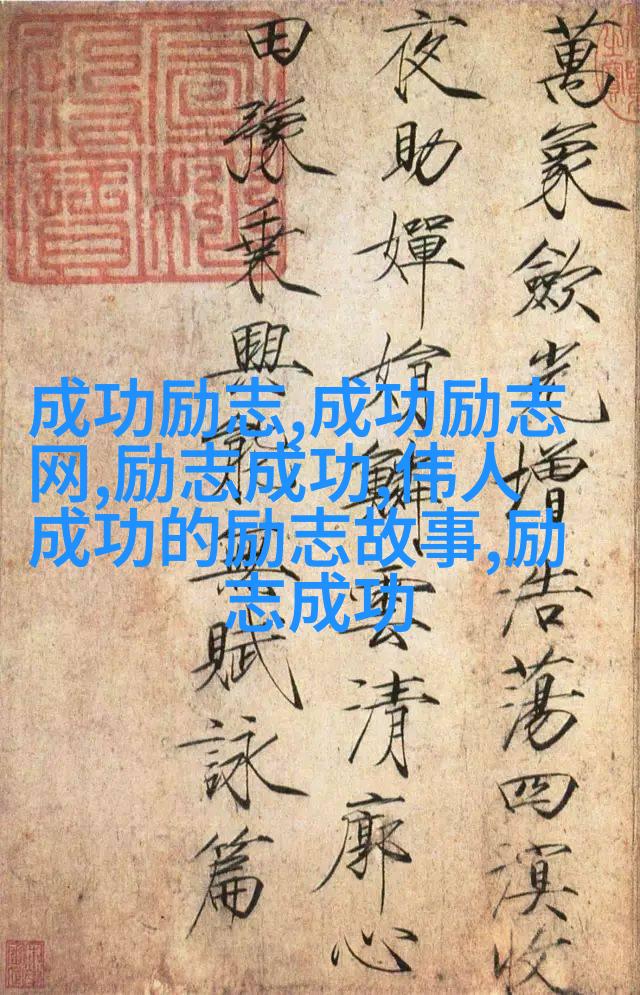 萬象歛光增浩蕩四溟收
夜助嬋娟鱗雲清廓心
田豫乘興能無賦詠篇
成功励志,成功励志
网,励志成功,伟人
成功的励志故事,励
志成功